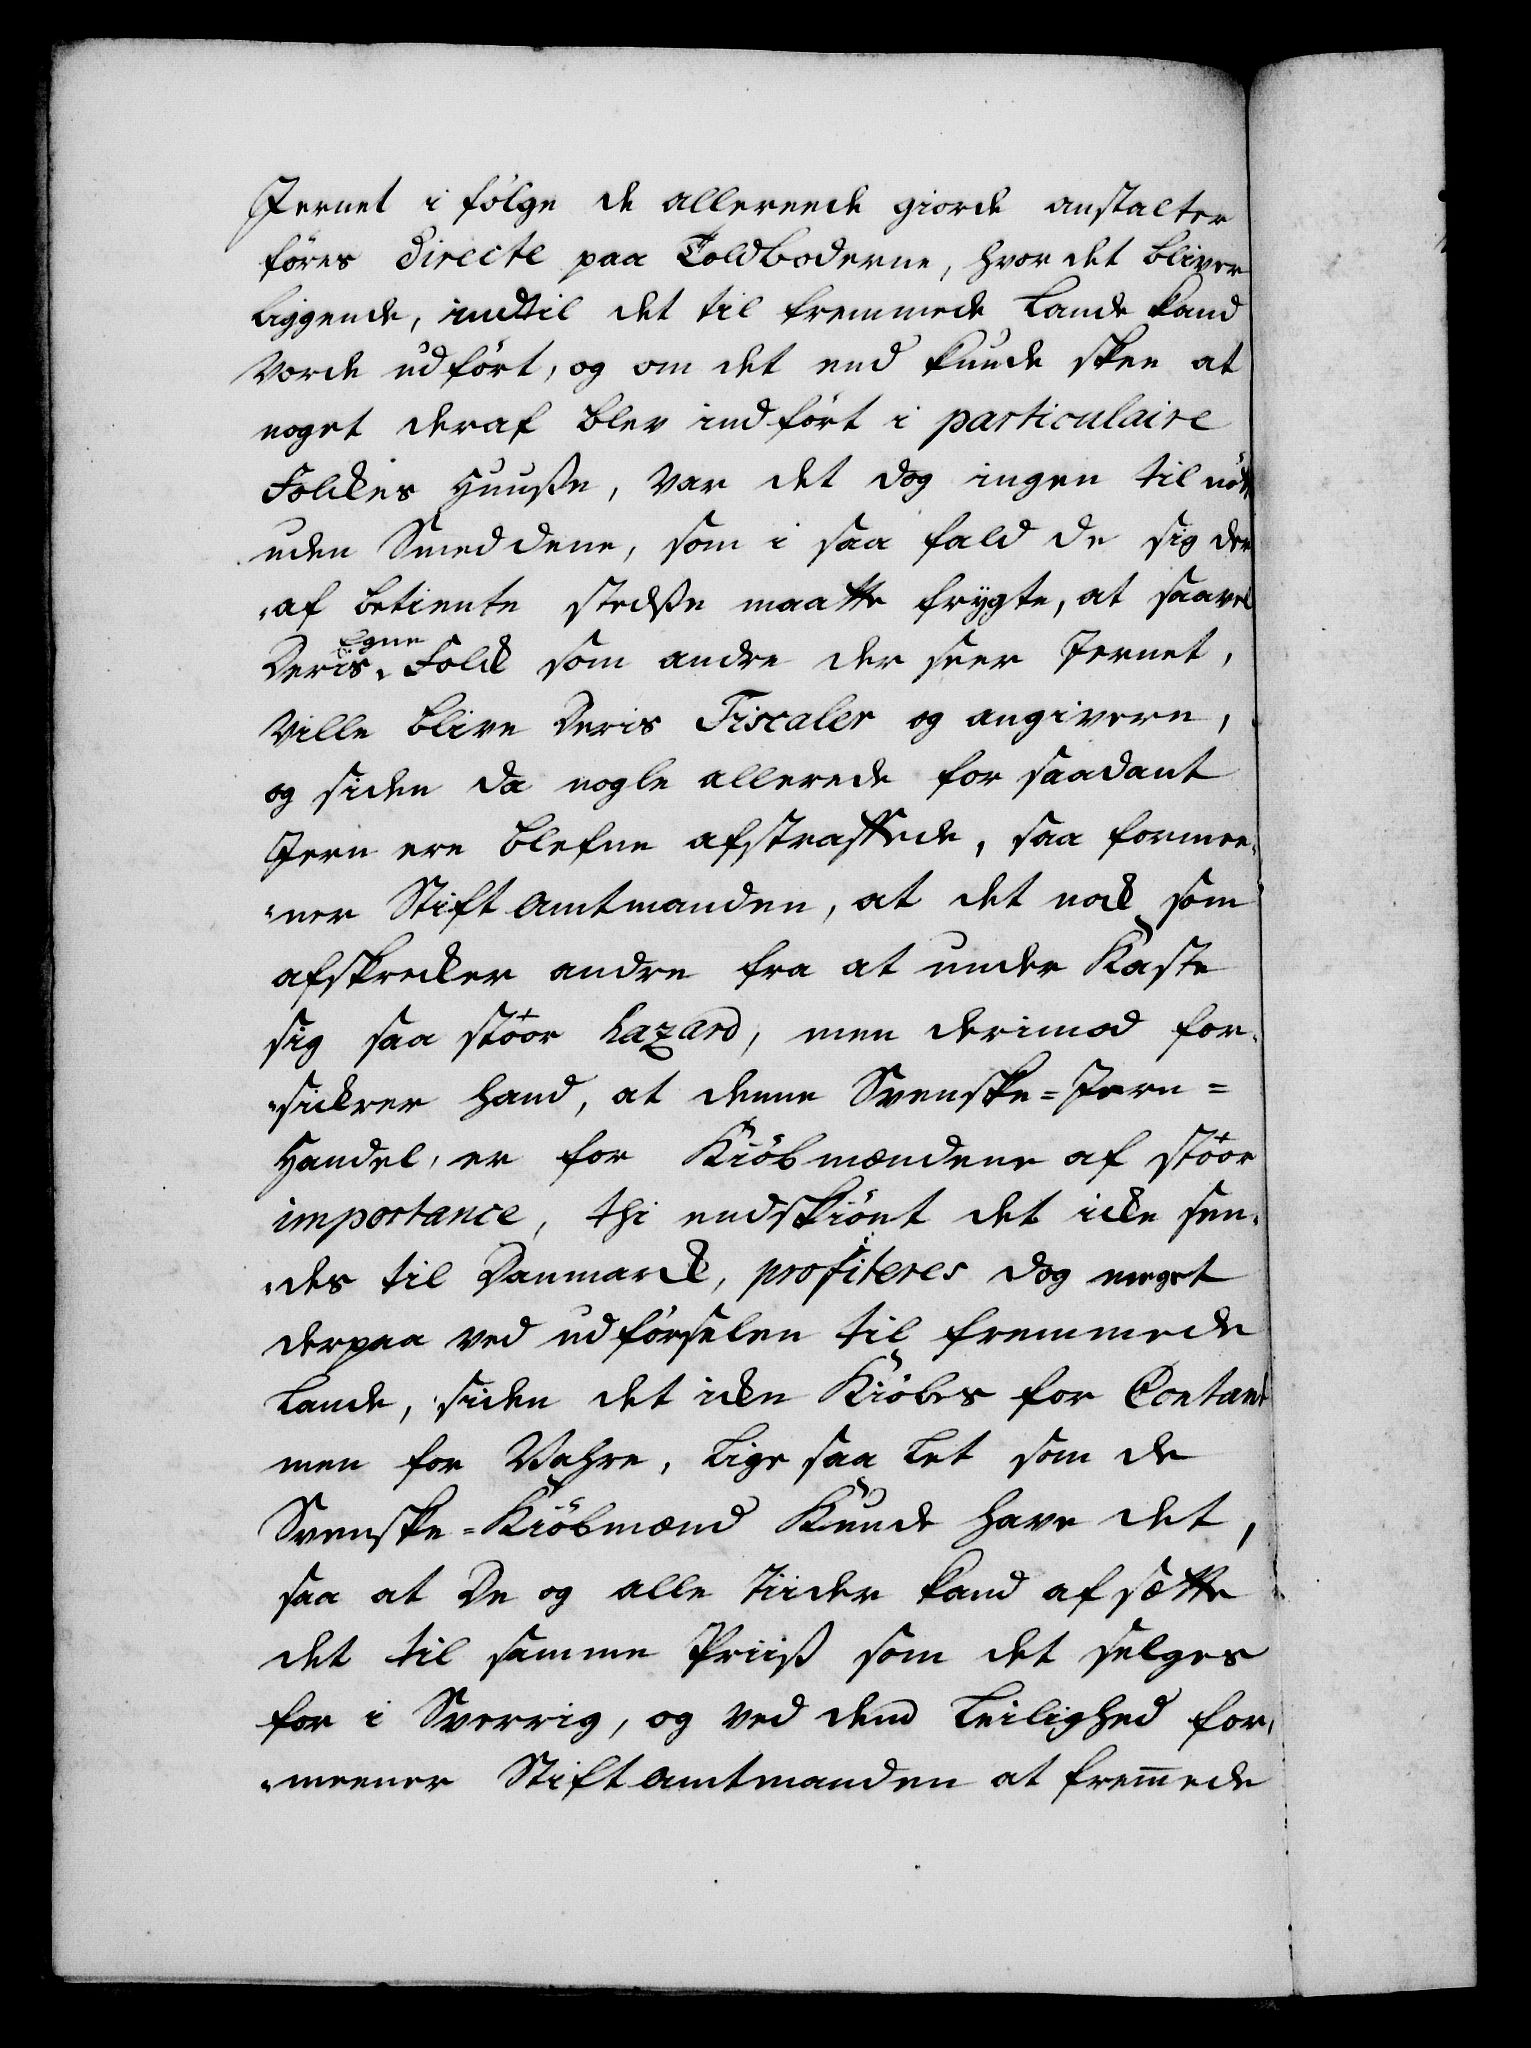 Jernet i fölge de allereede giorde anstalter
föres directe paa Toldboderne, hvor det bliver
liggende, indtil det til fremmede Lande kand
vorde udfört, og om det end kunde skee at
noget deraf blev indfört i particulaire
Folkes Huuse, var det dog ingen til nötte
uden Smeddene, som i saa fald de sig der
„af betiente stedse maatte frygte, at saavel
Deris Egne Folck som andre der seer Jernet,
ville blive Deris Fiscaler og angivere,
og siden da nogle allerede for saadant
Jern ere blefne afstraffede, saa formee„
„ner Stiftamtmanden, at det nock som
afskrecker andre fra at under Kaste
sig saa stoor hazard, men derimod for„
„sickrer hand, at denne Svenske=Jern=
Handel, er for Kiöbmændene af stoor
importance, thi endskiönt det icke sen„
„des til Danmarck, profiteres dog meget
derpaa ved udförselen til fremmede
Lande, siden det icke Kiöbes for Contant
men for Vahre, lige saa let som de
Svenske=Kiöbmænd Kunde have det,
saa at De og alle Tiider kand afsætte
det til samme Priiß som det selges
for i Sverrig, og ved dend Leilighed for„
„meener Stiftamtmanden at fremede